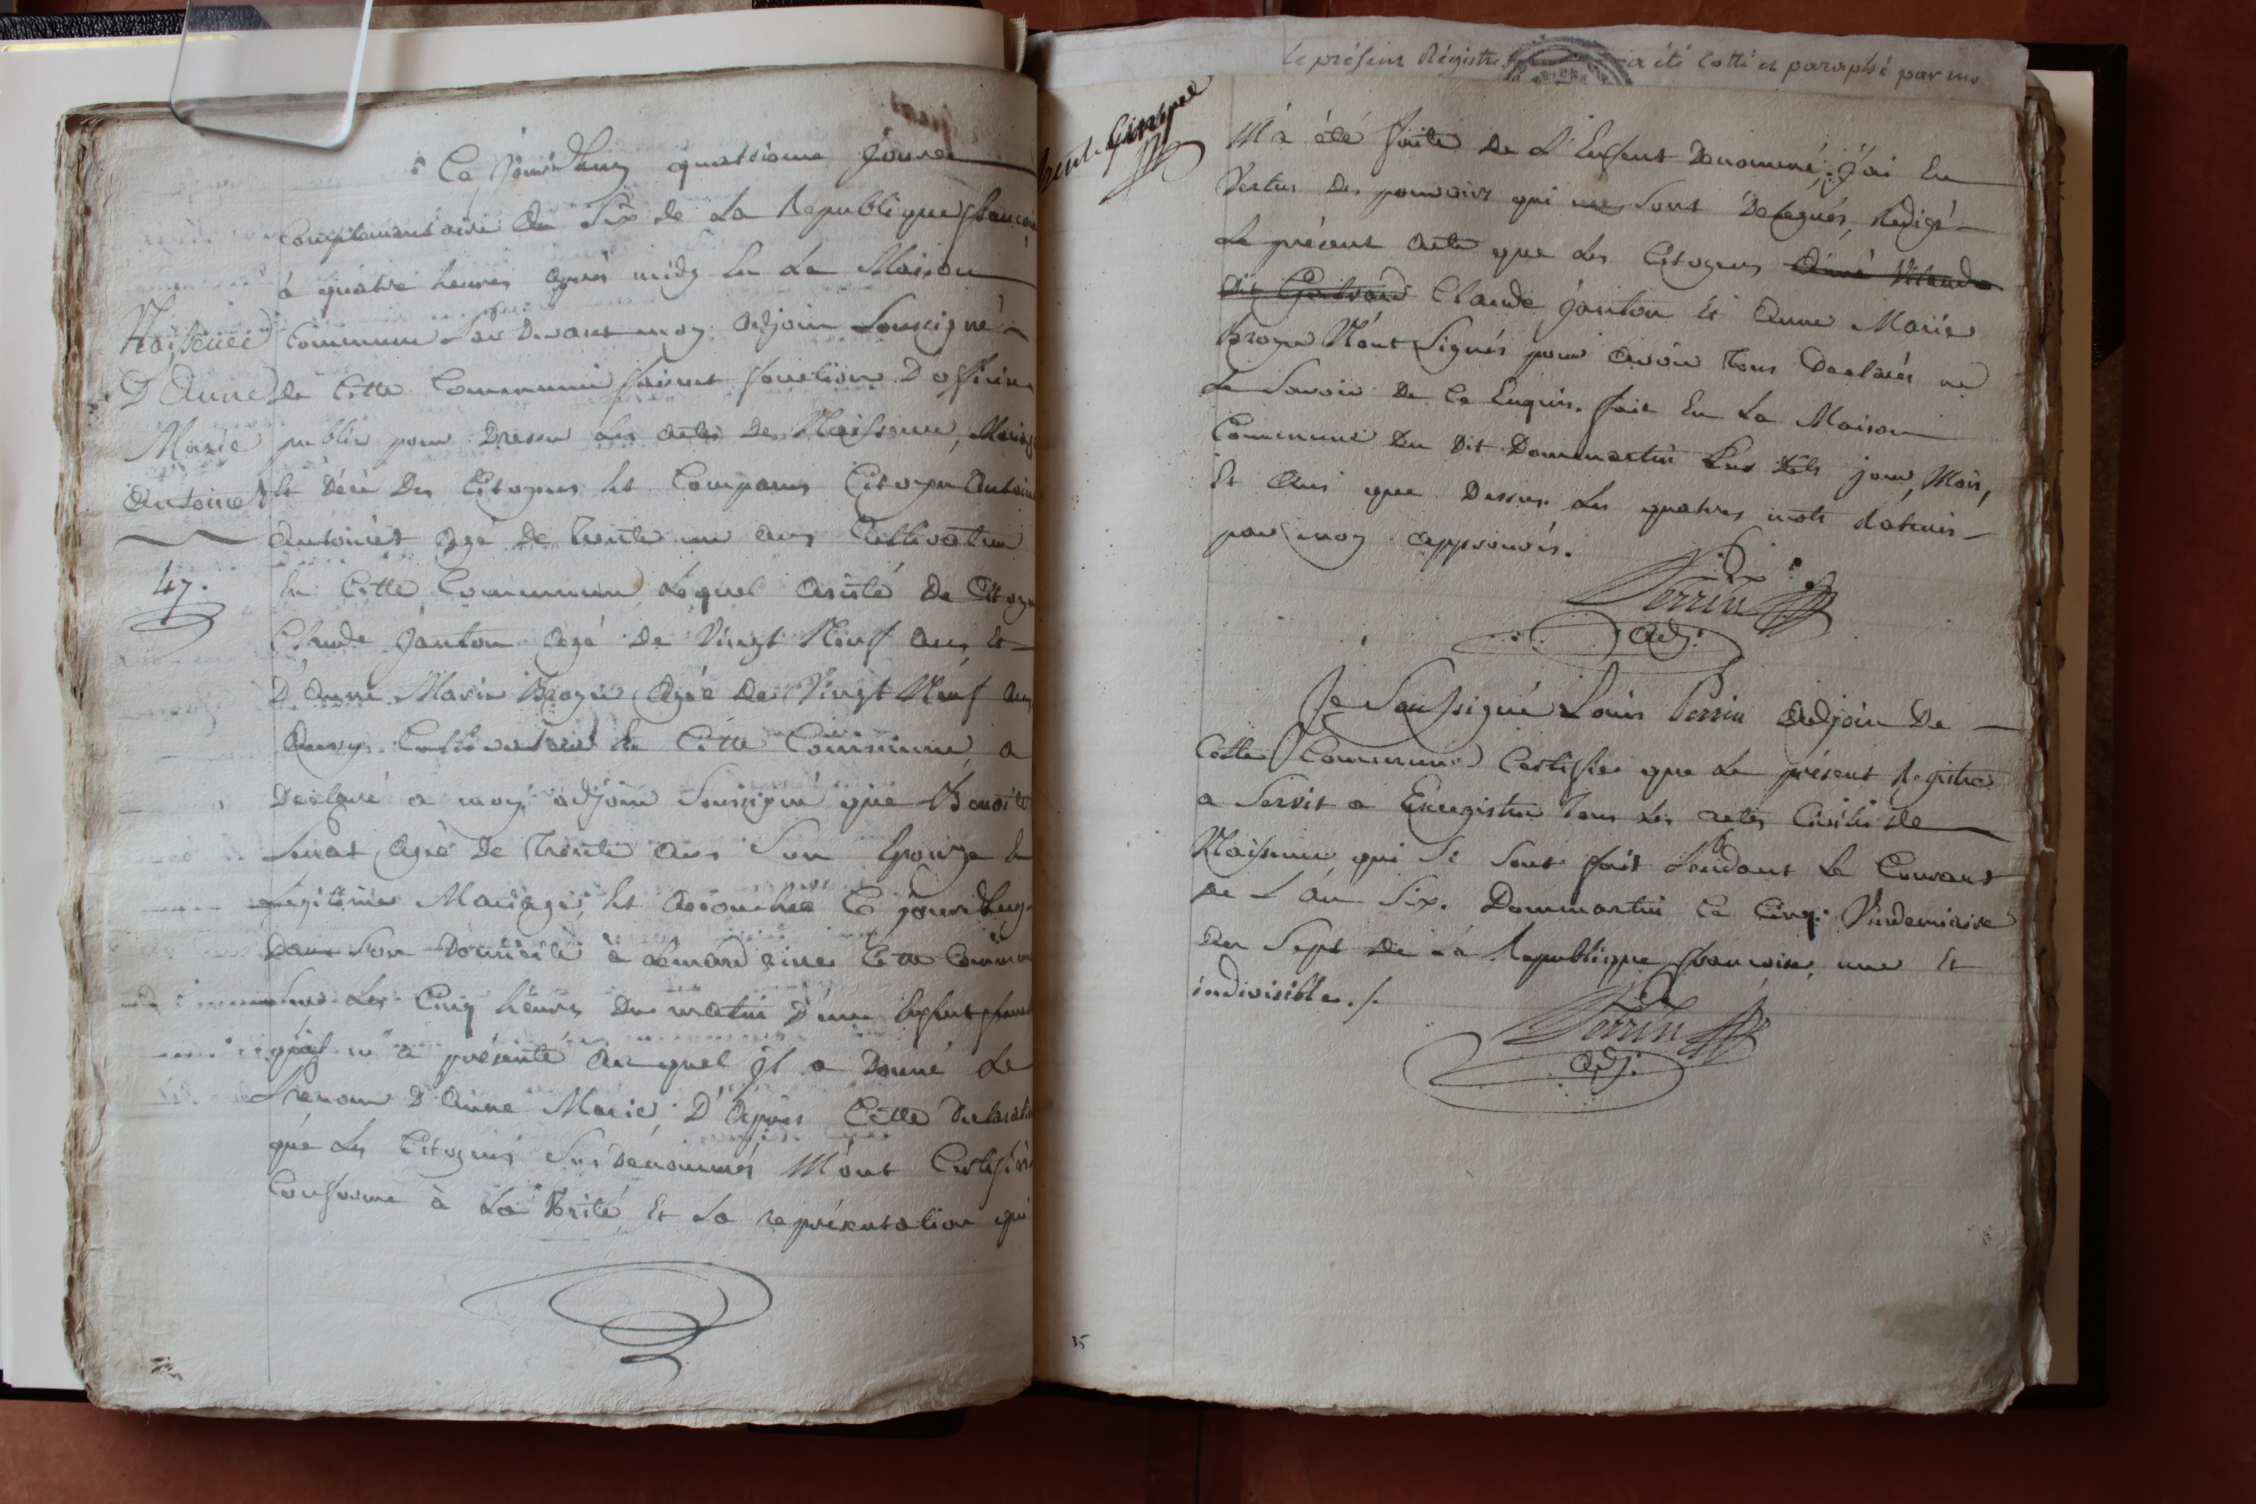 Ce jourd'huy quatrieme jour
complementaire An Six de La Republique francois
à quatre heures après midy En La Maison
Commune Par Devant moy Adjoin Soussigné
de Cette Commune faisant fonction D'officier
public pour Dresser les actes De Naissance, Mariage
Et Décè Des Citoyens Est Comparus Citoyen Antoine
Antoinet Agé De Trente un ans Cultivateur
En Cette Commune Lequel Asisté De Citoyen
Claude Janton Agé De Vingt Neuf ans Et
D'Anne Marie Broyer Agée De Vingt Neuf ans
Aussy Cultivateur de Cette Commune, a
Déclaré a moy adjoin Soussigné que Benoite
Agé De Trente ans Son Epouze En
Legitime Mariage, Est Acouchée Ce jourd'huy
Dans Son Domicile Cette Commune
Sur Les Cinq heures Du matin D'une Enfent
qu'il m'a présenté Au quel Il a Donné Le
Prenom D'Anne Marie, D'Après Cette Declaration
que Les Citoyens Susdenommés M'ont Certifié
Conforme à La Vérité Et La représentation qui
Naissence
D'Anne
Marie
Antoinet
47.
Le présent Régistre a été Cotté et paraphé par nous
M'a été faite De L'Enfent Denommé, J'ai En
Vertus Des pouvoirs qui me Sont Delegués, Redigé
Le présent Acte que Les Citoyens
Claude Janton Et Anne Marie
Broyer N'ont Signés pour Avoir Tous Declarés ne
Le Savoir De Ce Enquis. fait En La Maison
Commune Du Dit Dommartin Les jour, Mois,
Et Ans que Dessus Les quatres mots Raturés
par moy approuvés.
Perrin
Adj.
Je Soussigné Louis Perrin Adjoin De
Cette Commune Certiffie que Le présent Registre
a Servit a Enregistre Tous Les actes Civils de
Naissence qui Se Sont fait Pendant Le Courant
De L'An Six. Dommartin Ce Cinq Vindemiaire
An Sept De La Republique francoise une Et
indivisible./.
Perrin
Adj.
35